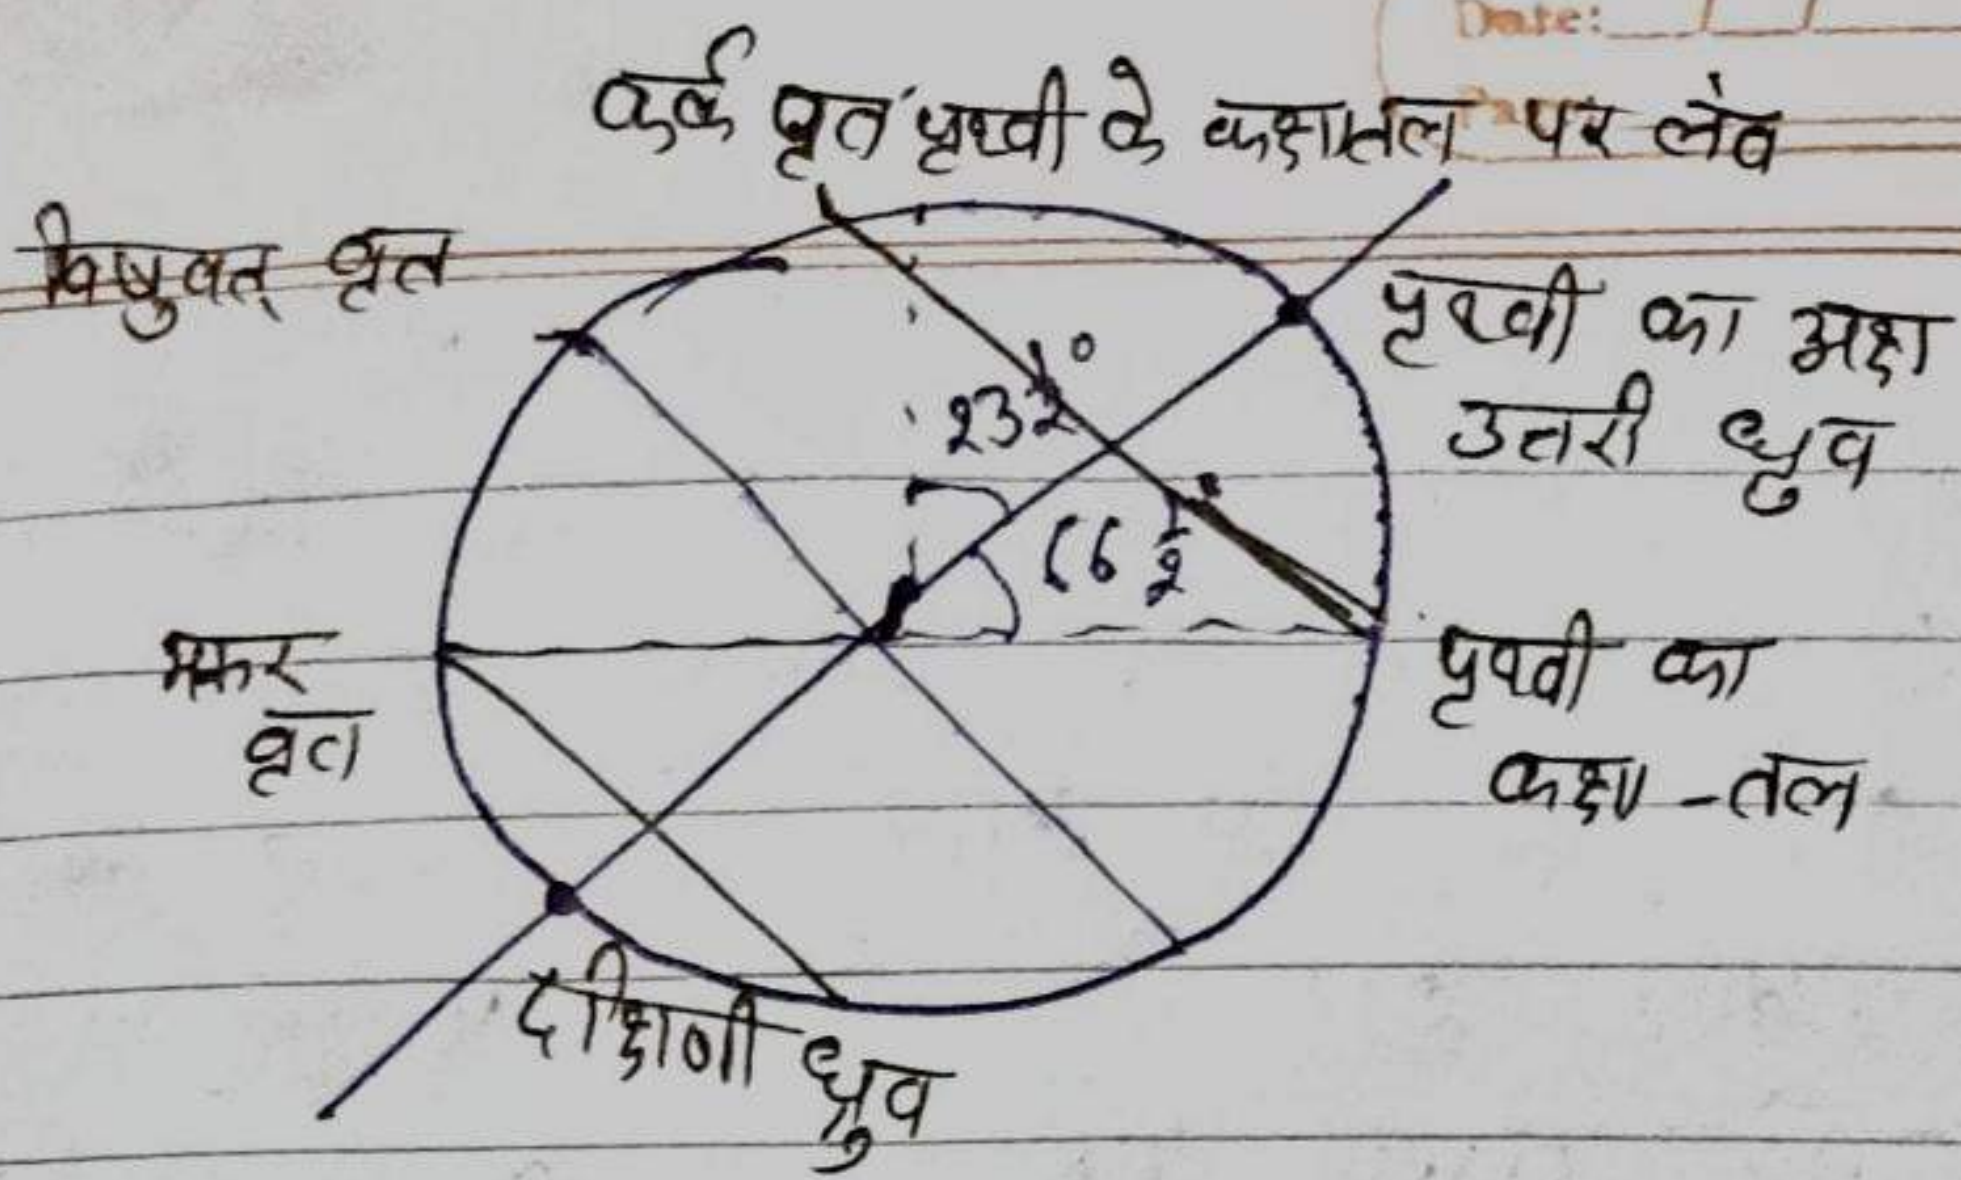 Date: __/__/__
कर्क वृत पृथ्वी के कक्षातल पर लंब
विषुवत् वृत
पृथ्वी का अक्ष
उतरी ध्रुव
23 1/2°
66 1/2°
मकर
वृत
पृथ्वी का
कक्षा - तल
दक्षिणी ध्रुव